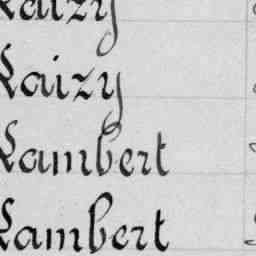 Laizy
Laizy
Lambert
Lambert